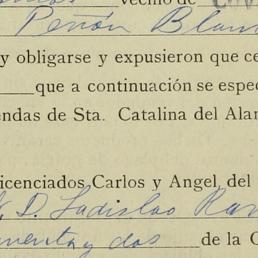 vecino de
Peñón Blan
y obligarse y expusieron que ce
que a continuación se espec
endas de Sta. Catalina del Alar
icenciados Carlos y Angel, del
D. Ladislao Ra
uenta y dos de la C